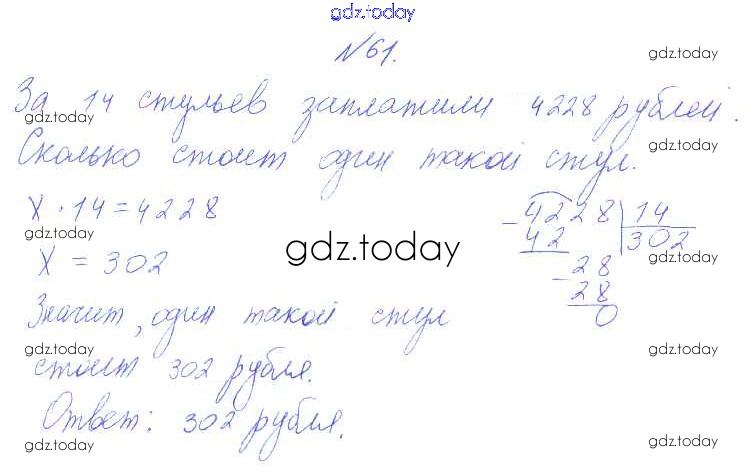 gdz.today
№61.
gdz.today
За 14 стульев заплатили 4228 рублей.
gdz.today
gdz.today
Сколько стоит один такой стул.
x · 14 = 4228
4228 | 14
gdz.today
42
302
x = 302
gdz.today
gdz.today
28
28
0
Значит, один такой стул
gdz.today
gdz.today
стоит 302 рубля.
Ответ: 302 рубля.
gdz.today
gdz.today